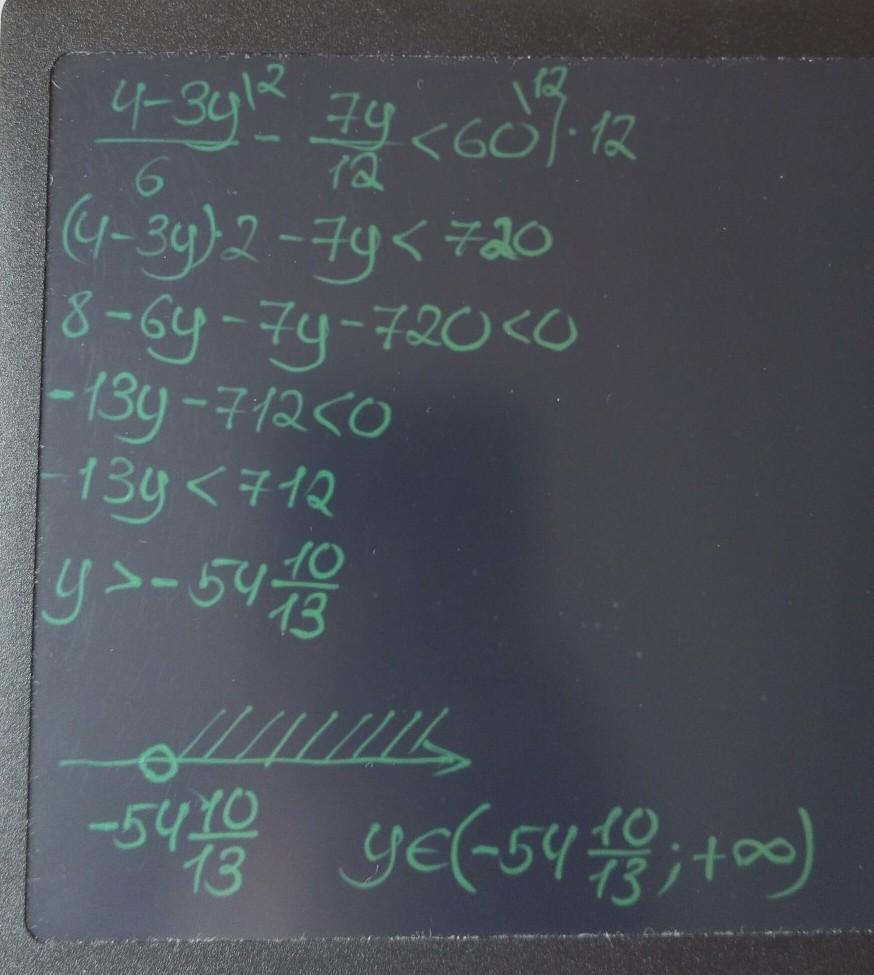 (4-3y)/6 \2 - 7y/12 < 60 \12 |·12
(4-3y)·2-7y<720
8-6y-7y-720<0
-13y-712<0
-13y<712
y>-54 10/13
-54 10/13
y∈(-54 10/13;+∞)